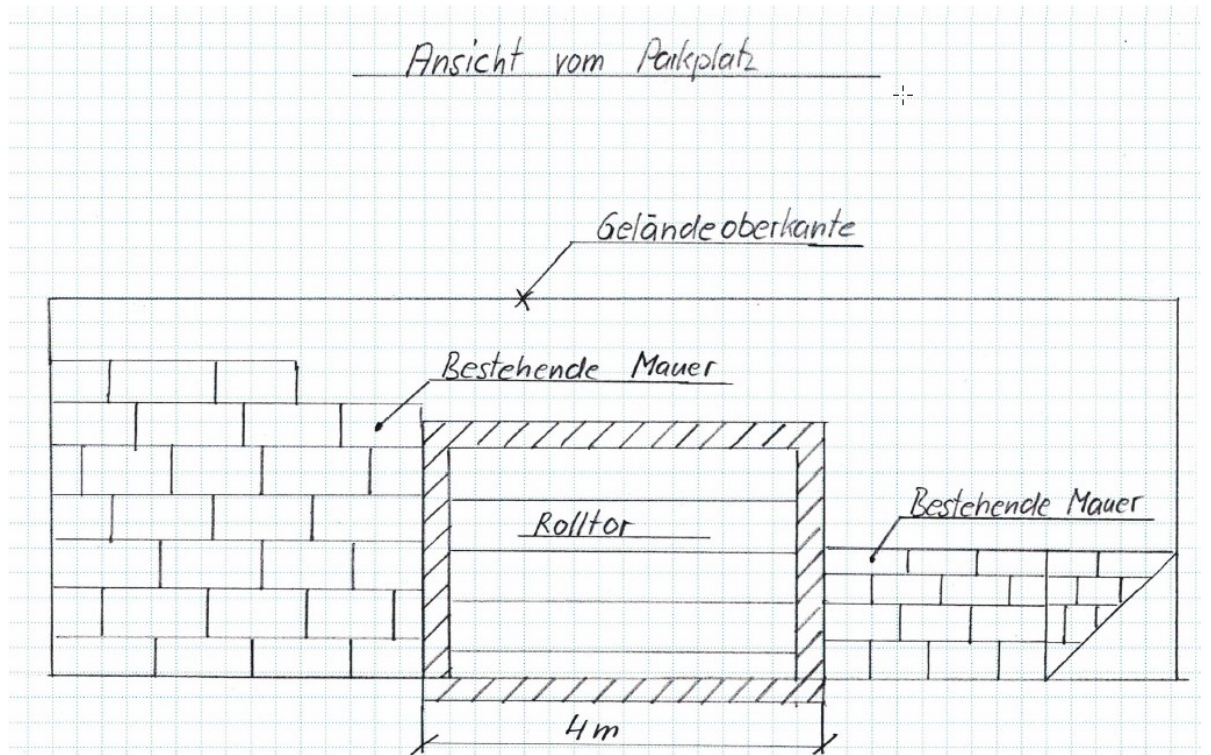 Ansicht vom Parkplatz
Geländeoberkante
Bestehende Mauer
Bestehende Mauer
Rolltor
4m